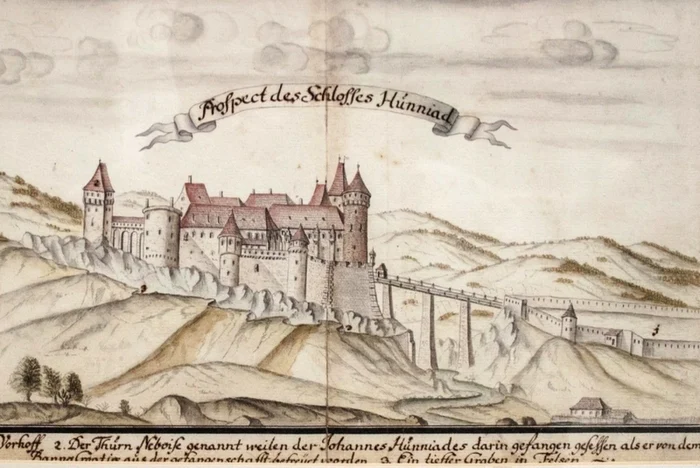 Prospect des Schlosses Hünniad
Vorhoff 2. Der Thürn Neboisé genannt weilen der Johannes Hünniades darin gefangen gesessen als er von dem
Banno Croatiæ aus der gefangenschafft befreuet worden 3. Ein tieffer Graben in Felsen